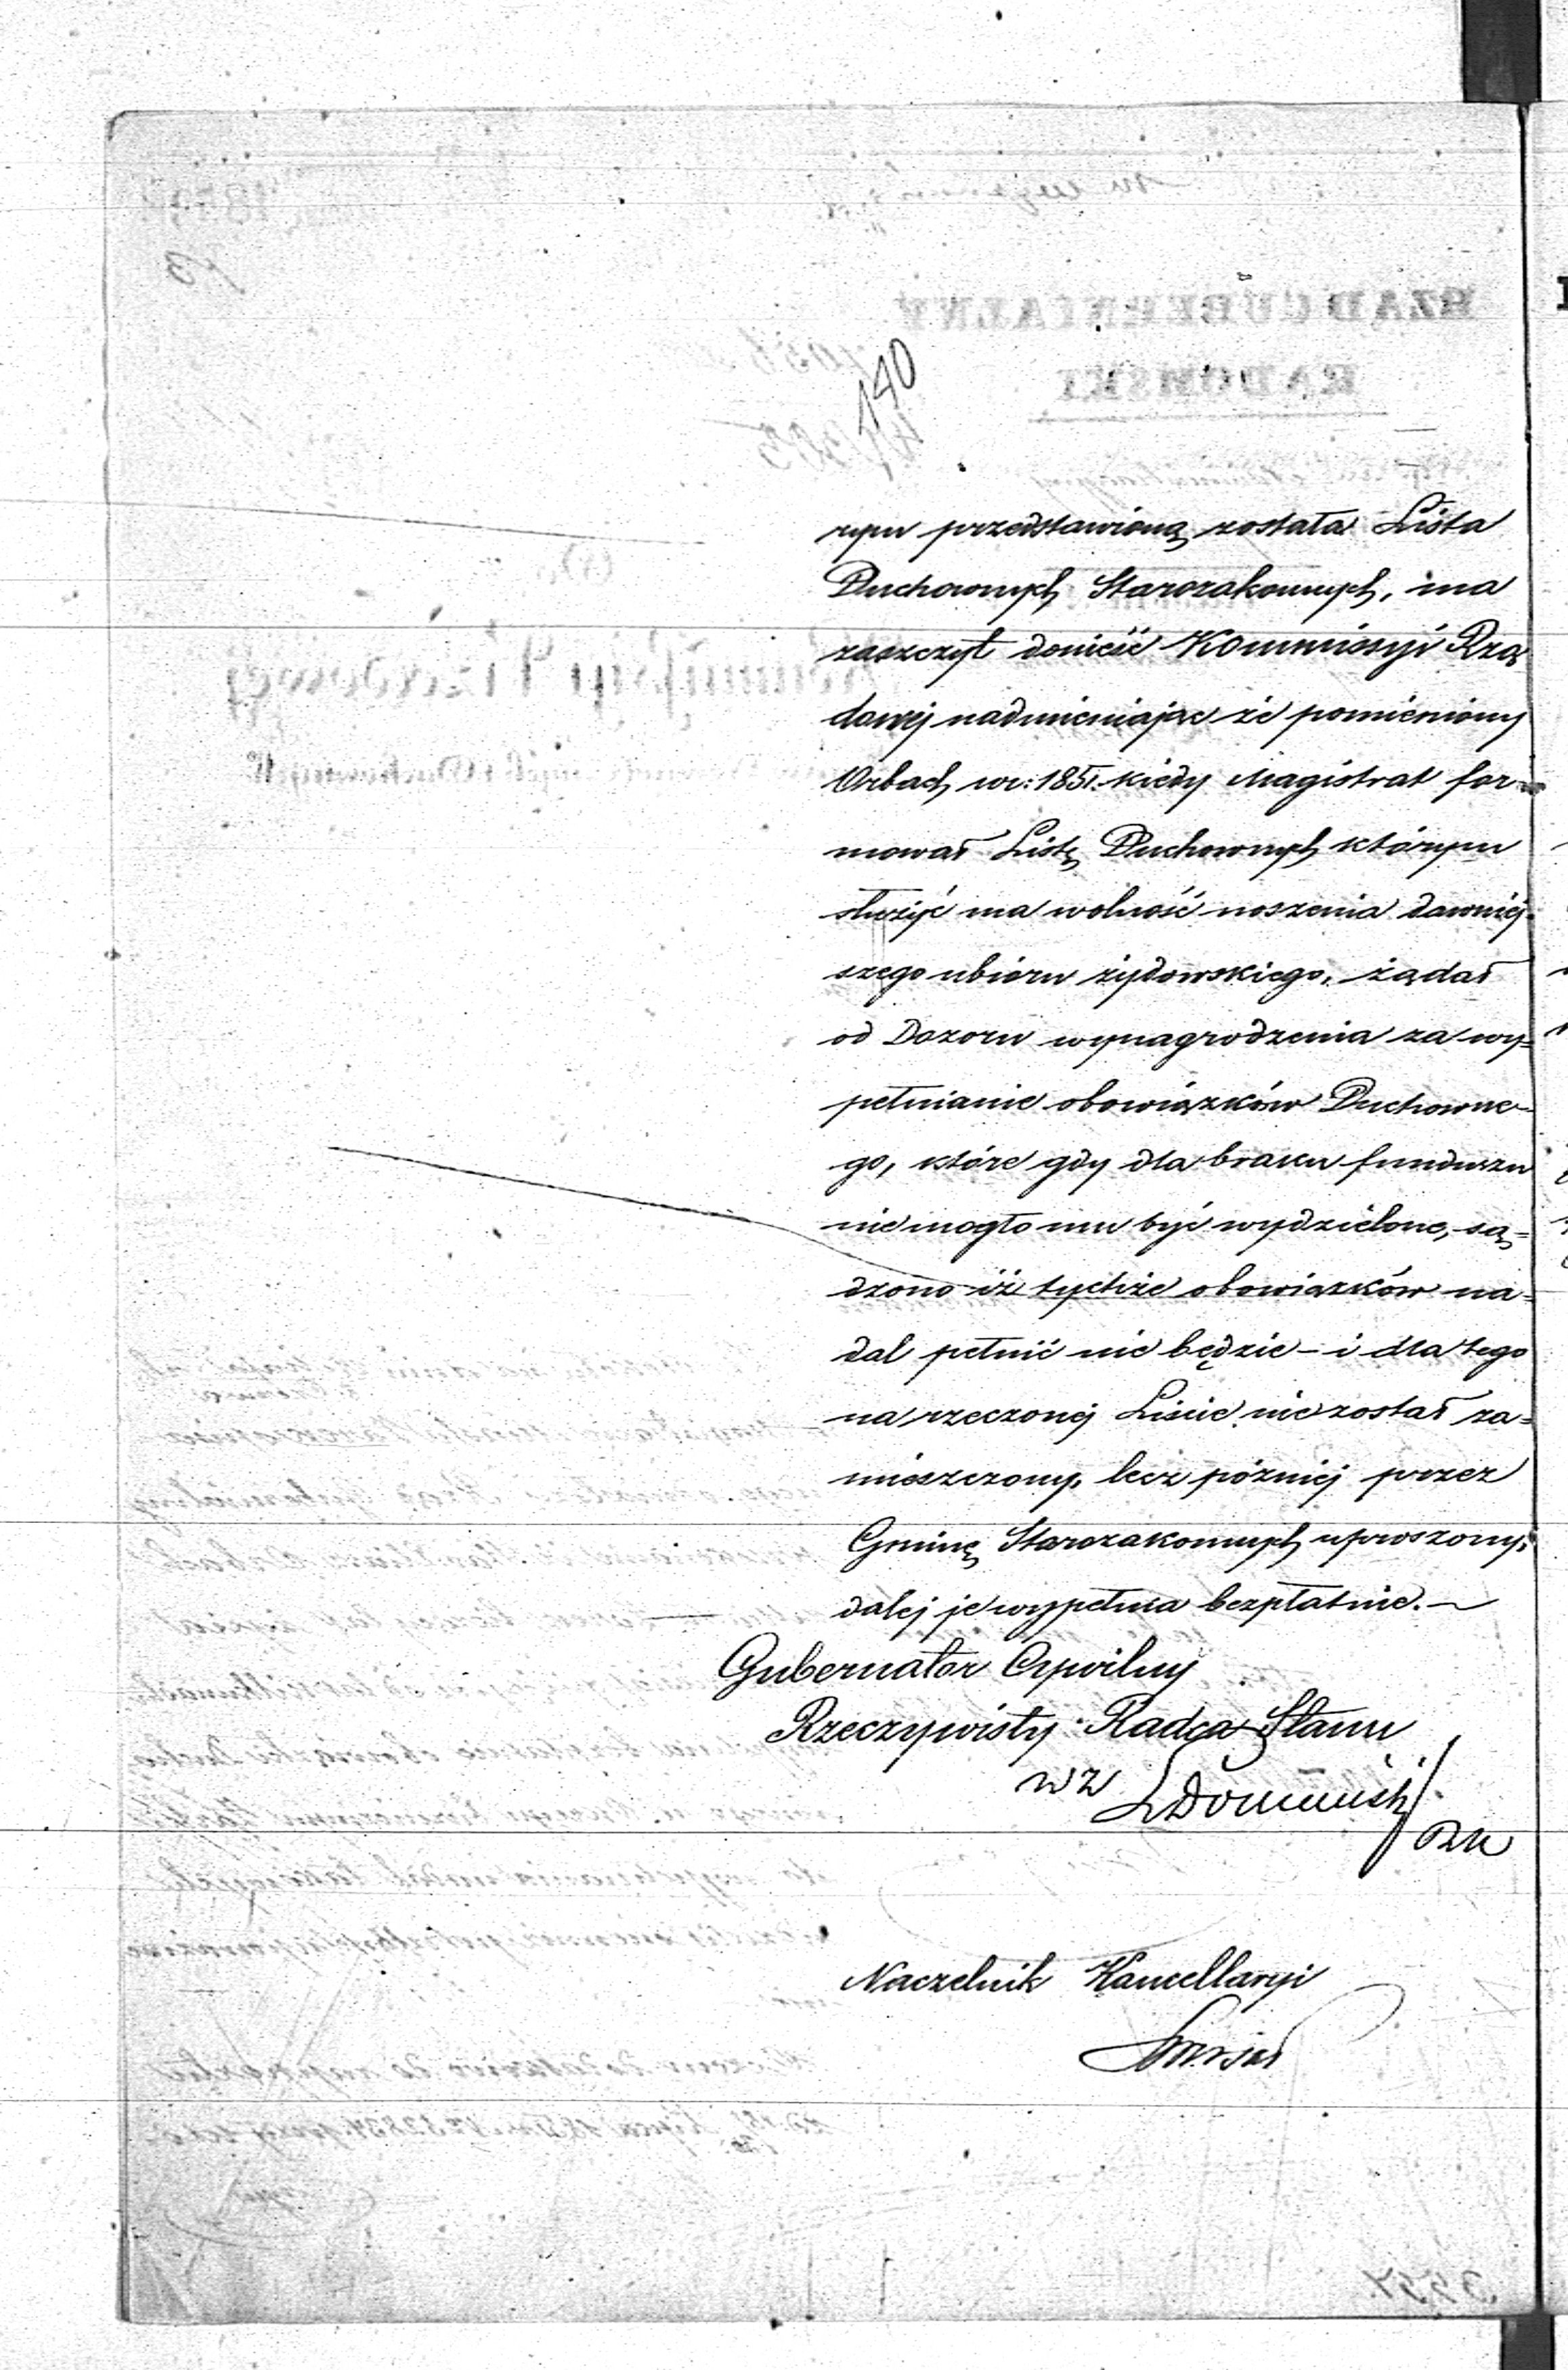 140
rym przedstawioną została Lista
Duchownych Starozakonnych, ma
zaszczyt donieść Kommissyi Rzą
dowej nadmieniając że pomieniony
Orbach w r: 1851. kiedy Magistrat for-
mował Listę Duchownych którym
służyć ma wolność noszenia dawniej-
szego ubioru żydowskiego, żądał
od Dozoru wynagrodzenia za wy=
pełnianie obowiązków Duchowne-
go, które gdy dla braku funduszu
nie mogło mu być wydzielone, są=
dzono iż tychże obowiązków na=
dal pełnić nie będzie – i dla tego
na rzeczonej Liście nie został za=
mieszczony, lecz później przez
Gminę Starozakonnych uproszony,
dalej je wypełnia bezpłatnie. –
Gubernator Cywilny
Rzeczywisty Radca Stanu
wz
Naczelnik Kancellaryi